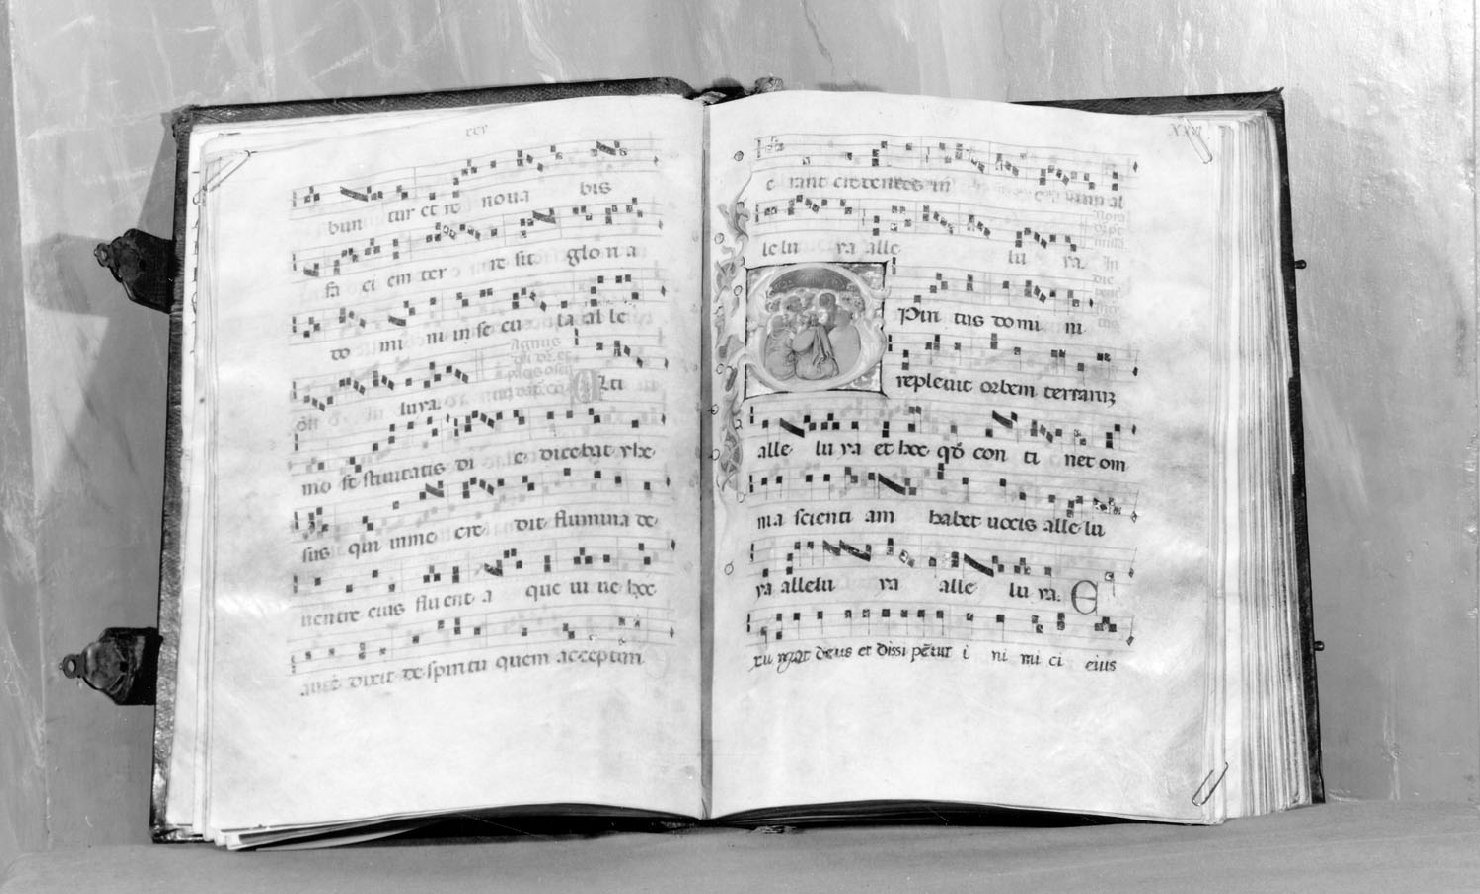 xcv
bun tur et re noua bis
fa ci em ter re sit glo ri a
do mi ni in se cu la al le
lu ya. Vlti
mo festiuitatis di e dicebat yhc
qui in me cre dit flumina de
uentre eius fluent a quia hoc
autem dixit de spiritu quem accepturi
Xxvi
e rant credentes in eum al
le lu ya alle lu ya.
Spiri tus domi ni
repleuit orbem terrarum
alle lu ya et hoc qd con ti net om
nia scienti am habet uocis alle lu
ya allelu ya alle lu ya. E
xurgat deus et dissi pentur i ni mi ci eius